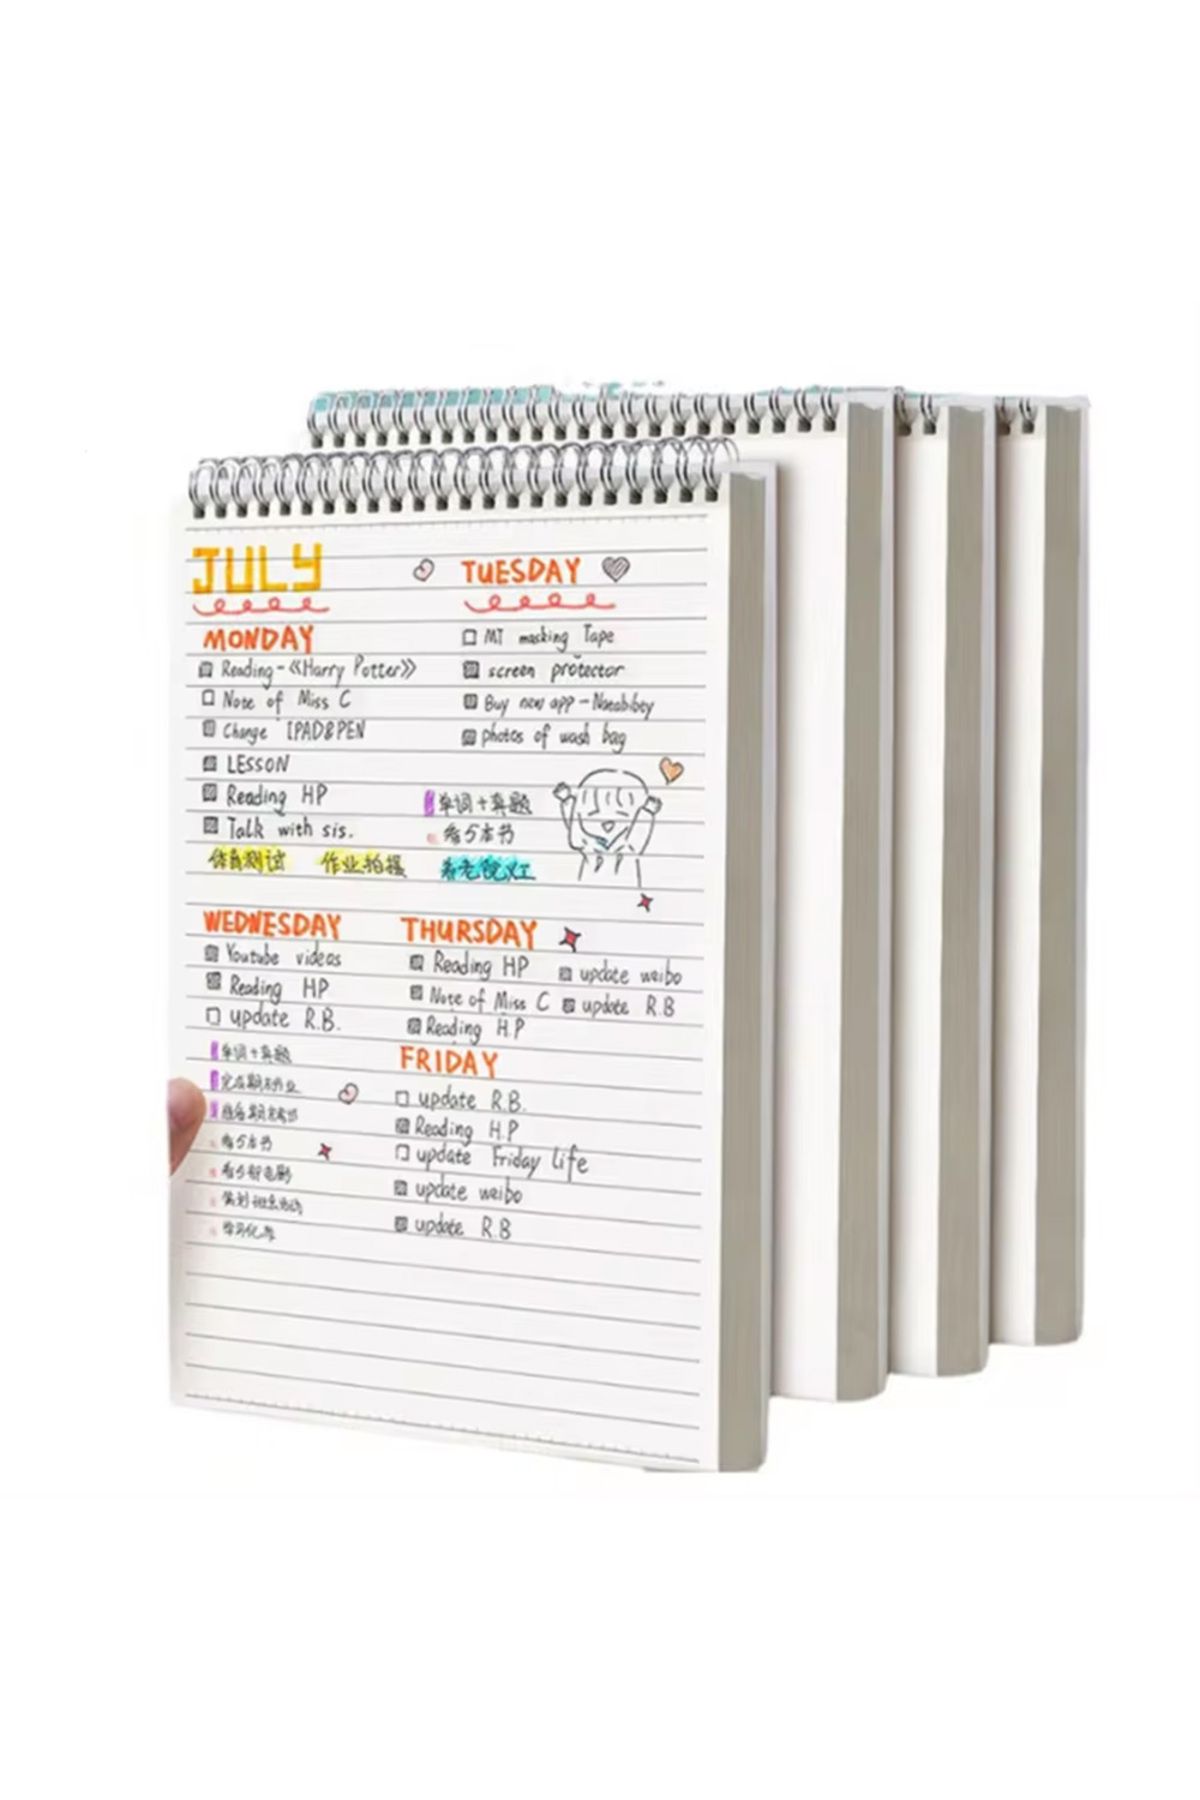 JULY
MONDAY
Reading-《Harry Potter》
Note of Miss C
Change IPAD&PEN
LESSON
Reading HP
Talk with sis.
体育测试 作业拍摄
TUESDAY
MT masking Tape
screen protector
Buy new app -
photos of wash bag
单词+真题
看5本书
看老饺义工
WEDNESDAY
Youtube videos
Reading HP
update R.B.
单词+真题
完成期末作业
看5本书
看5部电影
THURSDAY
Reading HP
Note of Miss C
Reading H.P
update weibo
update R.B
FRIDAY
update R.B.
Reading H.P
update Friday life
update weibo
update R.B